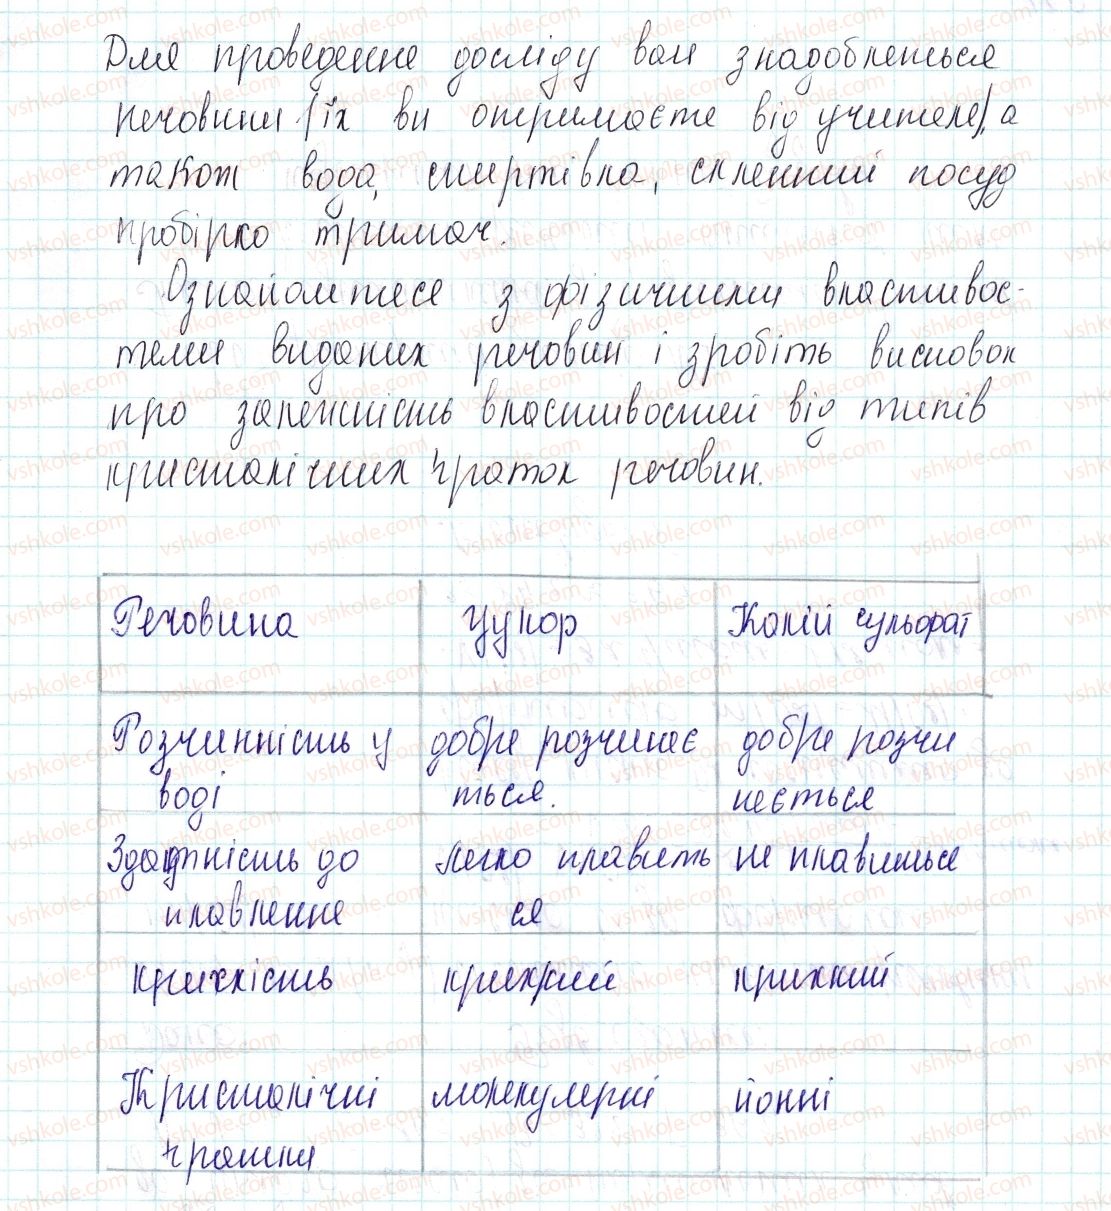 Для проведення досліду вам знадобляться
речовини (їх ви отримаєте від учителя), а
також вода, спиртівка, скляний посуд
пробірко тримач.
Ознайомтеся з фізичними властивос-
тями виданих речовин і зробіть висновок
про залежність властивостей від типів
кристалічних ґраток речовин.
Речовина Цукор Калій сульфат
Розчинність у добре розчиняє добре розчи
воді ться. няється
Здатність до легко плавить не плавиться
плавлення ся
крихкість крихкий крихкий
Кристалічні молекулярні йонні
ґратки
vshkole.com